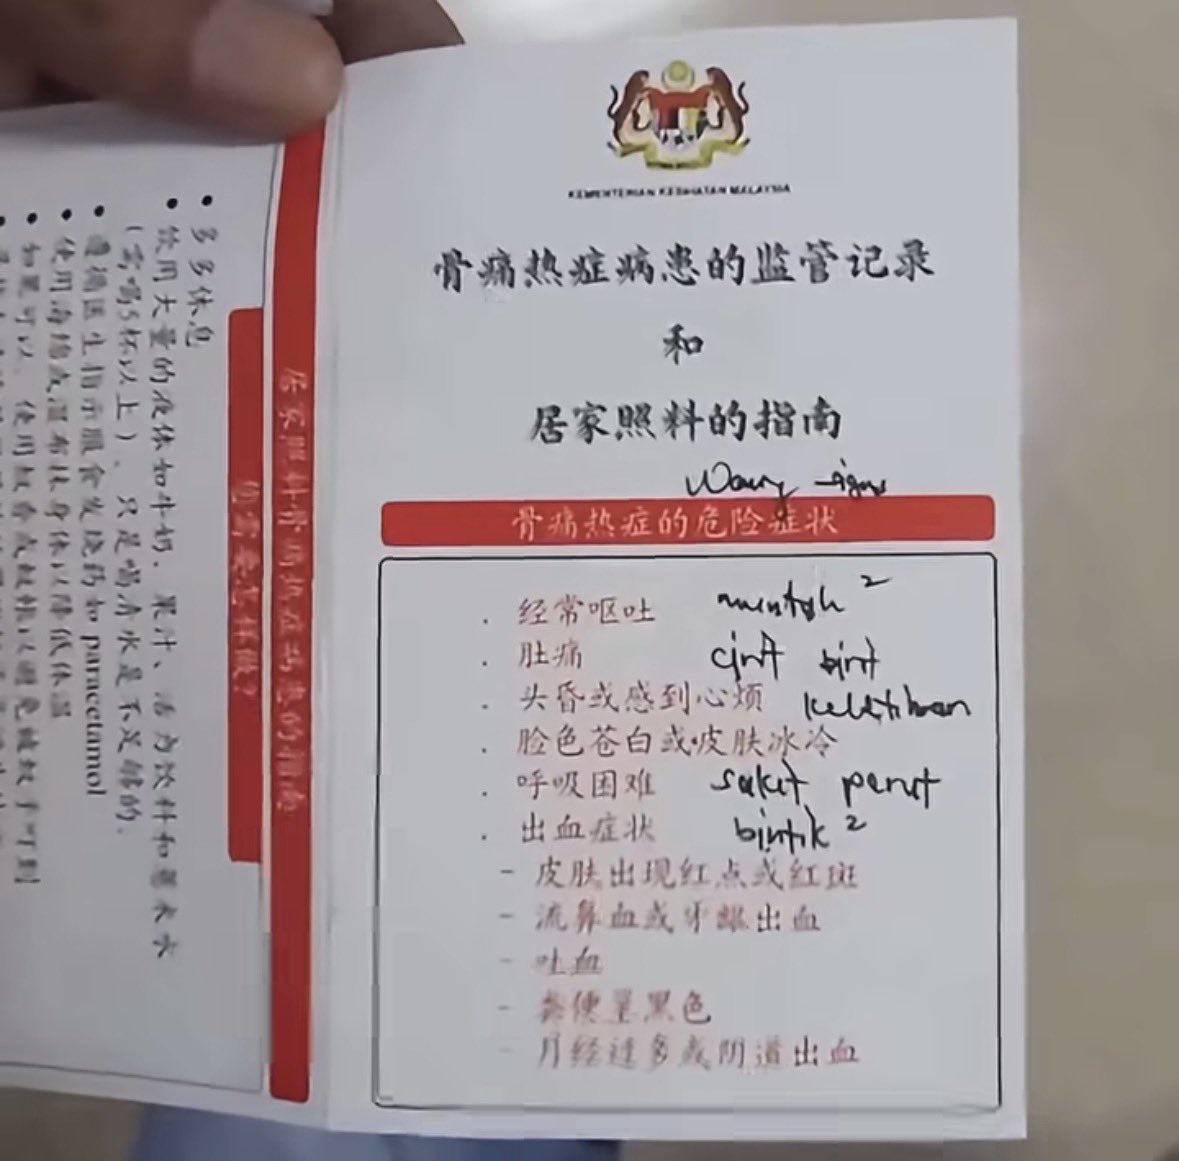 KEMENTERIAN KESIHATAN MALAYSIA
骨痛热症病患的监管记录
和
居家照料的指南
signs
骨痛热症的危险症状
. 经常呕吐 muntah ²
. 肚痛 cirit birit
. 头昏或感到心烦 keletihan
. 脸色苍白或皮肤冰冷
. 呼吸困难 sakit perut
. 出血症状 bintik ²
- 皮肤出现红点或红斑
- 流鼻血或牙龈出血
- 吐血
- 粪便呈黑色
- 月经过多或阴道出血
居家照料骨痛热症病患的指南
您需要怎样做?
• 多多休息
• 饮用大量的液体如牛奶、果汁、
(需喝5杯以上)、只是喝清水是不足够的.
• 遵循医生指示服食发烧药如 paracetamol
• 使用海绵或湿布抹身体以降低体温
• 如果可以、使用蚊香或蚊帐以避免被蚊子叮到